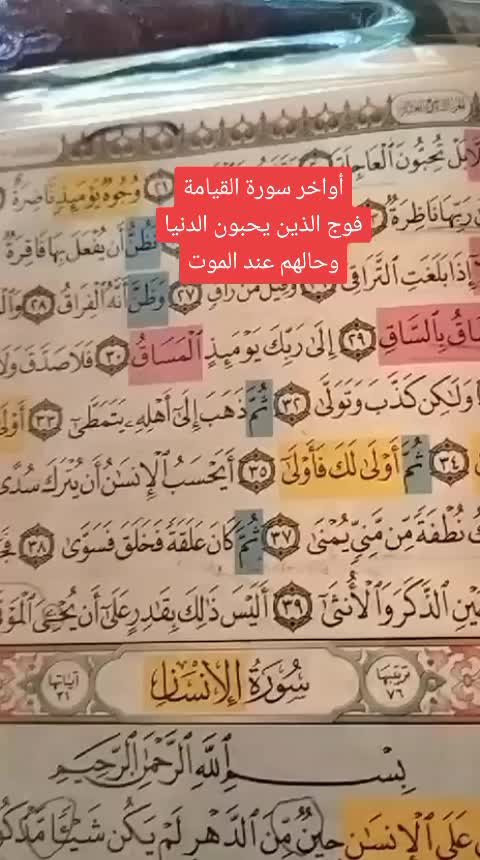 بَلْ تُحِبُّونَ ٱلْعَاجِلَةَ
٢١ وُجُوهٌ يَوْمَئِذٍ نَّاضِرَةٌ
أواخر سورة القيامة
رَبِّهَا نَاظِرَةٌ
فوج الذين يحبون الدنيا
تَظُنُّ أَن يُفْعَلَ بِهَا فَاقِرَةٌ
وحالهم عند الموت
إِذَا بَلَغَتِ ٱلتَّرَاقِيَ وَقِيلَ مَنْ رَاقٍ ٢٧ وَظَنَّ أَنَّهُ ٱلْفِرَاقُ ٢٨
بِٱلسَّاقِ ٢٩ إِلَىٰ رَبِّكَ يَوْمَئِذٍ ٱلْمَسَاقُ ٣٠ فَلَا صَدَّقَ وَلَا
وَلَٰكِن كَذَّبَ وَتَوَلَّىٰ ٣٢ ثُمَّ ذَهَبَ إِلَىٰٓ أَهْلِهِۦ يَتَمَطَّىٰٓ ٣٣
٣٤ ثُمَّ أَوْلَىٰ لَكَ فَأَوْلَىٰٓ ٣٥ أَيَحْسَبُ ٱلْإِنسَٰنُ أَن يُتْرَكَ سُدًى
نُطْفَةً مِّن مَّنِىٍّ يُمْنَىٰ ٣٧ ثُمَّ كَانَ عَلَقَةً فَخَلَقَ فَسَوَّىٰ ٣٨
ٱلذَّكَرَ وَٱلْأُنثَىٰٓ ٣٩ أَلَيْسَ ذَٰلِكَ بِقَٰدِرٍ عَلَىٰٓ أَن يُحْۦِىَ
ترتيبها ٧٦ سُورَةُ ٱلْإِنسَانِ آياتها ٣١
بِسْمِ ٱللَّهِ ٱلرَّحْمَٰنِ ٱلرَّحِيمِ
عَلَى ٱلْإِنسَٰنِ حِينٌ مِّنَ ٱلدَّهْرِ لَمْ يَكُن شَيْـًٔا